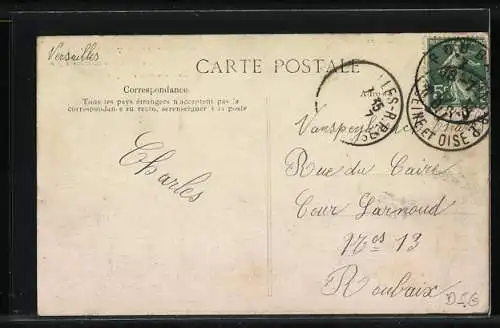 Versailles
CARTE POSTALE
Correspondance
Tous les pays étrangers n'acceptent pas le
correspondance au recto, se renseigner à la poste
Charles
Adresse
Rue du Caire
Cour Larnoud
Nos 13
Roubaix
SEINE-ET-OISE
5c